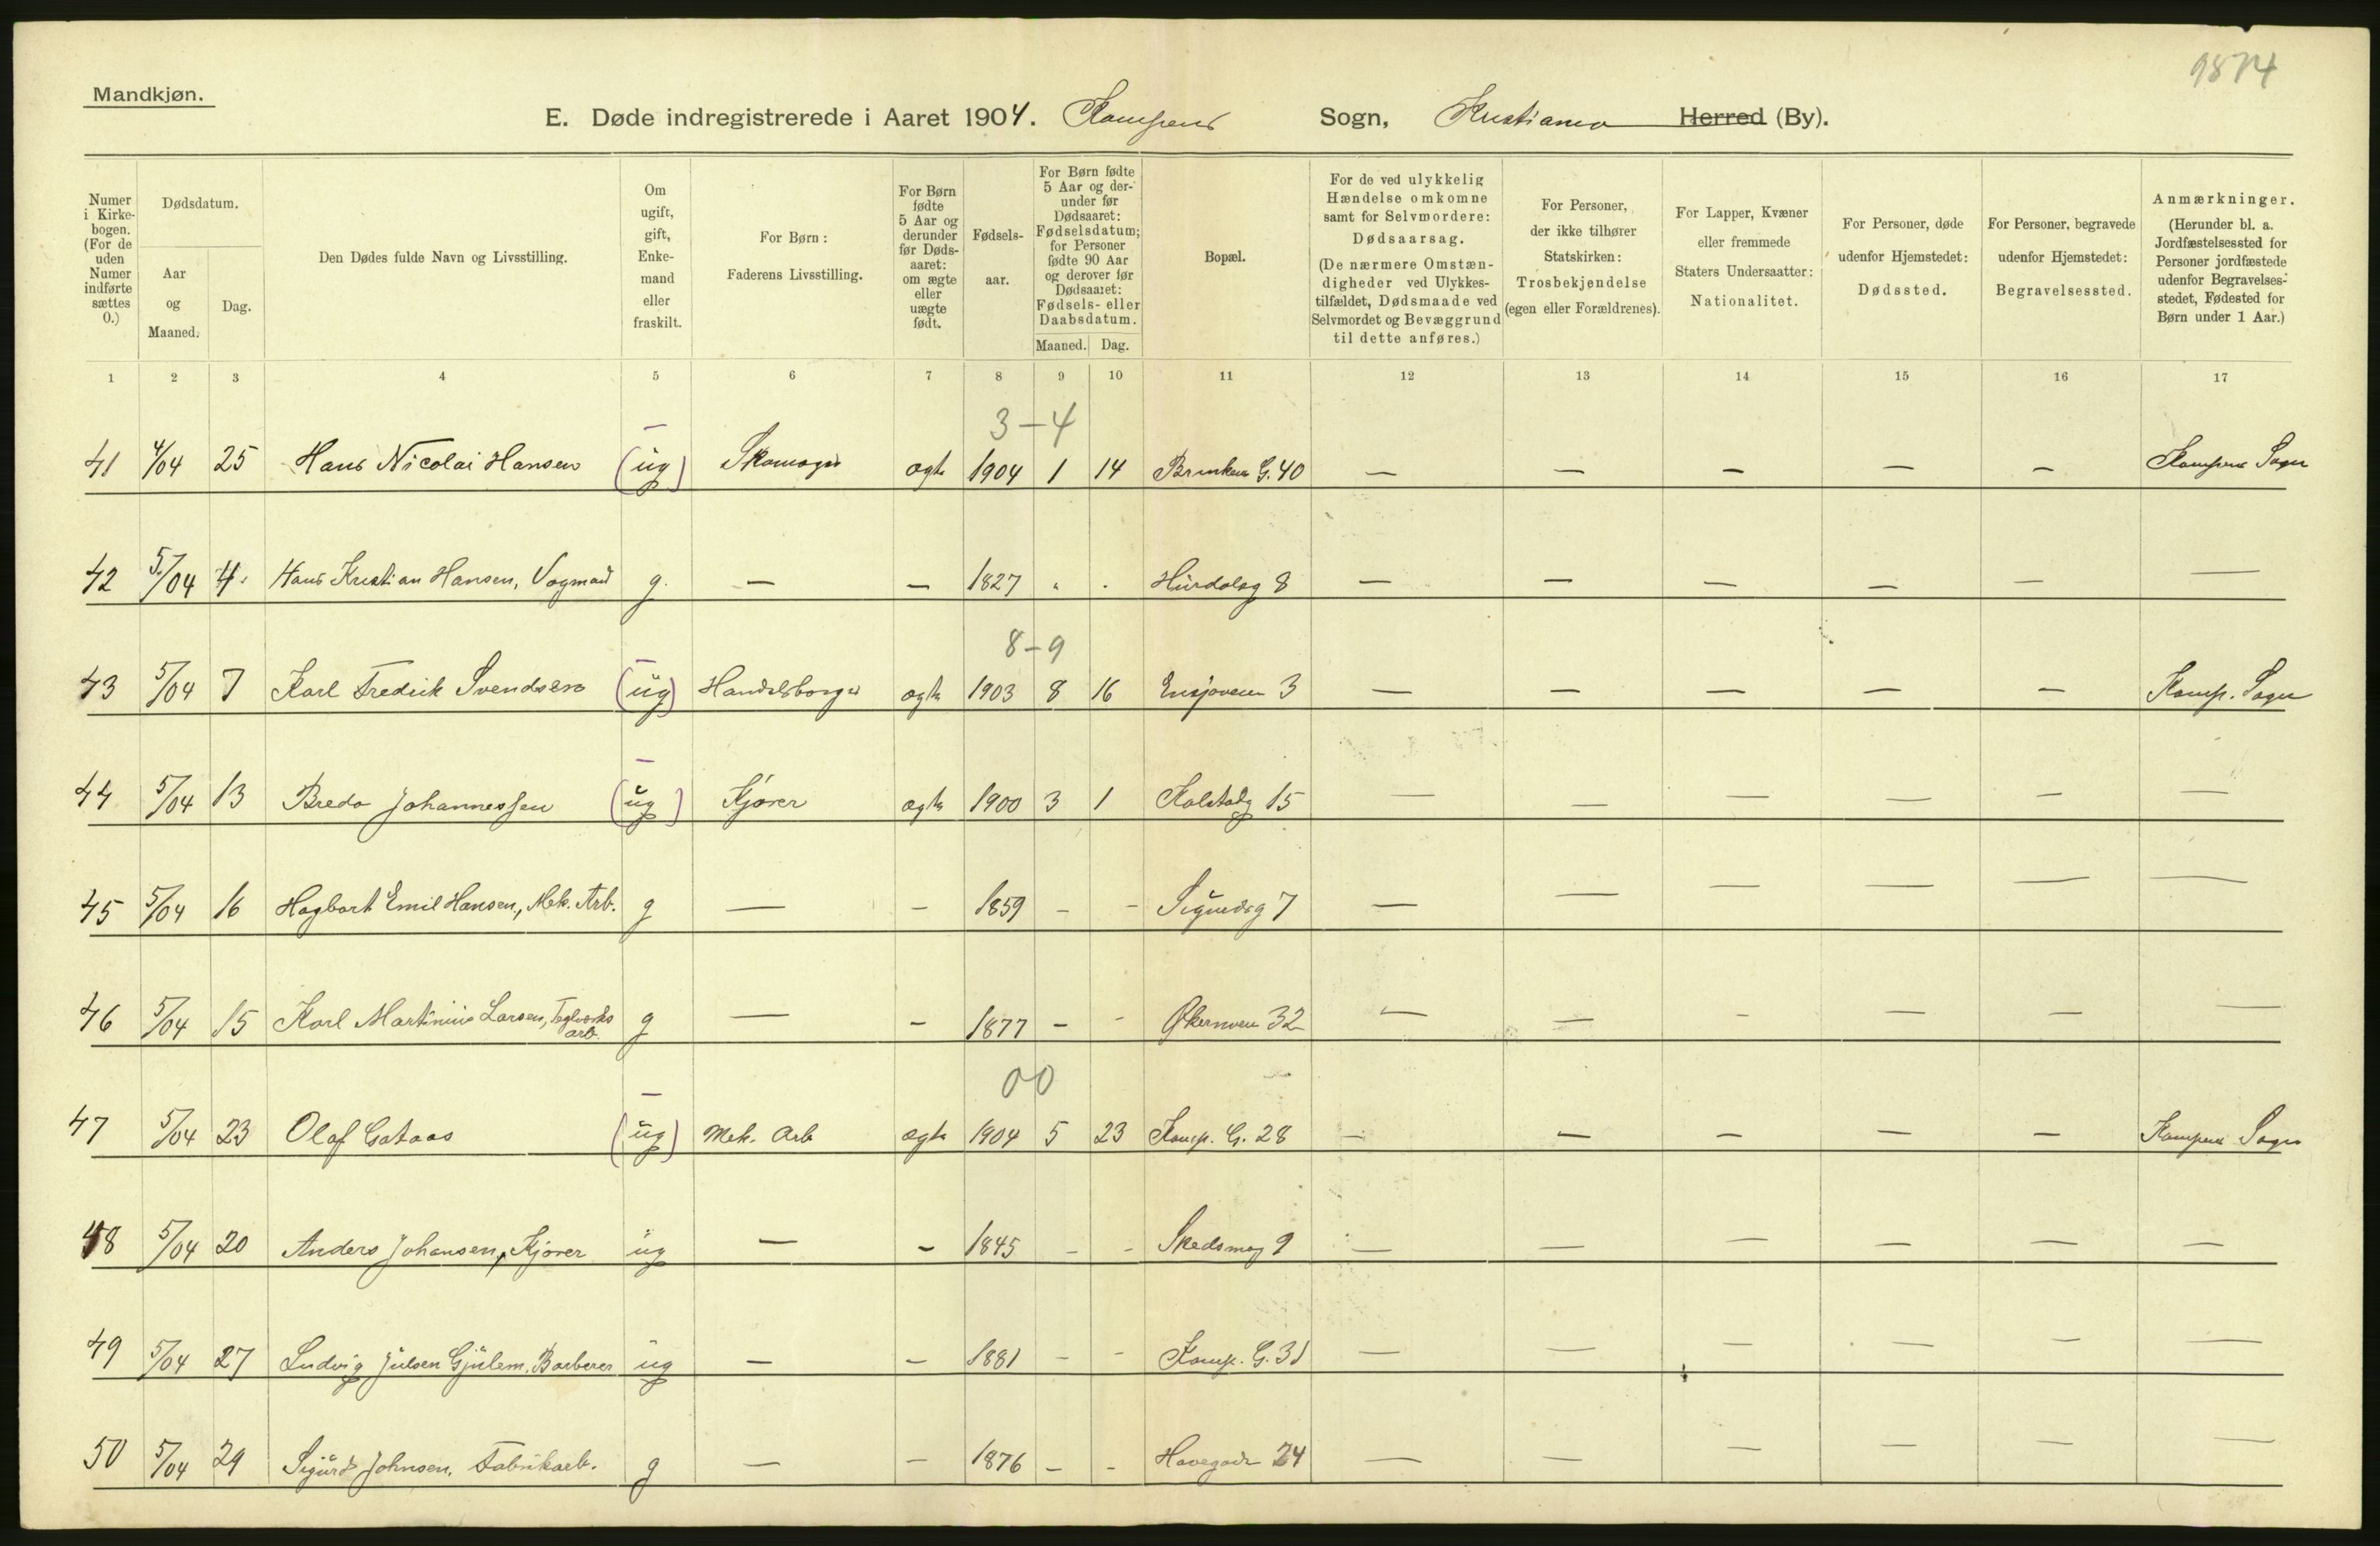 9874
Mandkjøn.
E. Døde indregistrerede i Aaret 1904. Kampens Sogn, Kristiania Herred (By).
Numer i Kirkebogen. (For de uden Numer indførte sættes 0.)
Dødsdatum.
Aar og Maaned.
Dag.
Den Dødes fulde Navn og Livsstilling.
Om ugift, gift, Enkemand eller fraskilt.
For Børn: Faderens Livsstilling.
For Børn fødte 5 Aar og derunder før Dødsaaret: om ægte eller uægte født.
Fødselsaar.
For Børn fødte 5 Aar og derunder før Dødsaaret: Fødselsdatum; for Personer fødte 90 Aar og derover før Dødsaaret: Fødsels- eller Daabsdatum.
Maaned. Dag.
Bopæl.
For de ved ulykkelig Hændelse omkomne samt for Selvmordere: Dødsaarsag. (De nærmere Omstændigheder ved Ulykkestilfældet, Dødsmaade ved Selvmordet og Bevæggrund til dette anføres.)
For Personer, der ikke tilhører Statskirken: Trosbekjendelse (egen eller Forældrenes).
For Lapper, Kvæner eller fremmede Staters Undersaatter: Nationalitet.
For Personer, døde udenfor Hjemstedet: Dødssted.
For Personer, begravede udenfor Hjemstedet: Begravelsessted.
Anmærkninger. (Herunder bl. a. Jordfæstelsessted for Personer jordfæstede udenfor Begravelsesstedet, Fødested for Børn under 1 Aar.)
1 2 3 4 5 6 7 8 9 10 11 12 13 14 15 16 17
3-4
41 4/04 25 Hans Nicolai Hansen (ug) Skomager ægte 1904 1 14 Brinken G. 40 — — — — — Kampens Sogn
42 5/04 4. Hans Kristian Hansen, Vognmand g. — — 1827 " . Hurdalsg 8 — — — — — —
8-9
43 5/04 7 Karl Fredrik Svendsen (ug) Handelsborger ægte 1903 8 16 Ensjøveien 3 — — — — — Kamp. Sogn
44 5/04 13 Bredo Johannessen (ug) ægte 1900 3 1 Kolstadg 15 — — — — — —
45 5/04 16 Hagbart Emil Hansen, Mek. Arb. g — — 1859 - - Sigurdsg 7 — — — — — —
46 5/04 15 Karl Martinius Larsen, Teglverks arb. g — — 1877 - - Økernveien 32 — — — — — —
00
47 5/04 23 Olaf Gataas (ug) Mek. Arb ægte 1904 5 23 Kamp. G. 28 — — — — — Kampens Sogn
48 5/04 20 Anders Johansen, Kjører ug — — 1845 - - Skedsmog 9 — — — — — —
49 5/04 27 Ludvig Julsen Gjulem, Barberer ug — — 1881 - - Kamp. G. 31 — — — — — —
50 5/04 29 Sigurd Johnsen, Fabrikarb. g — — 1876 - - Havegade 24 — — — — — —